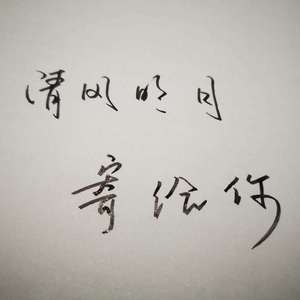 清风明月
寄给你